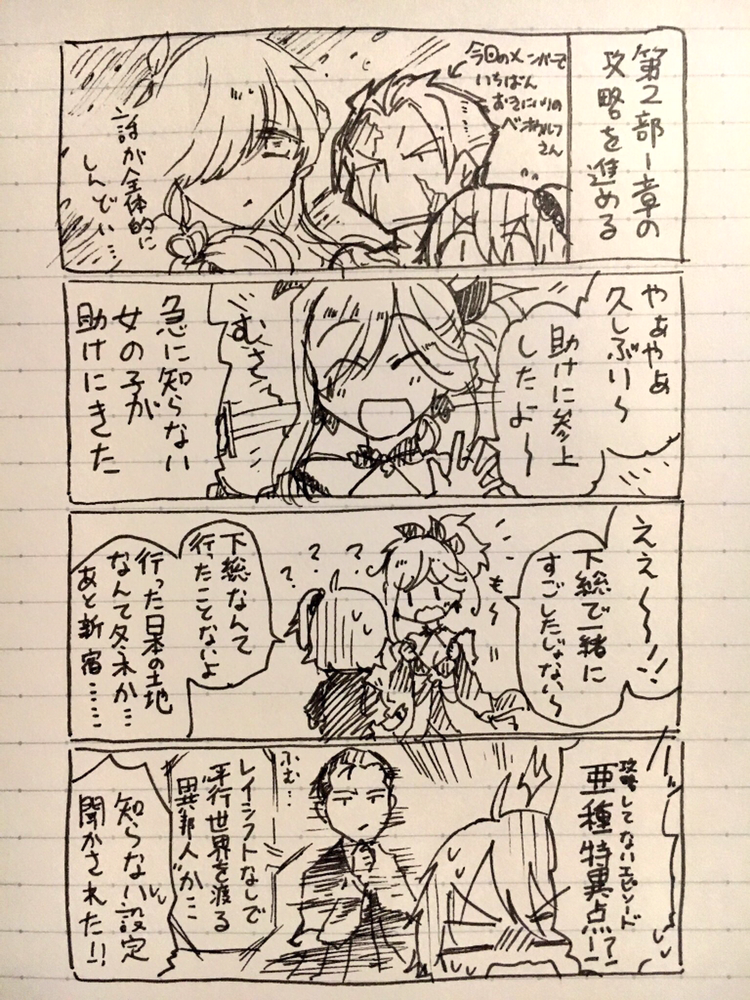 第2部1章の
攻略を進める
今回のメンバーで
いちばん
おきにいりの
ベオウルフ
さん
話が全体的に
しんどい…
やぁやぁ
久しぶり〜
助けに参上
したよ〜
むさし
急に知らない
女の子が
助けにきた
ええ〜〜!!
下総で一緒に
すごしたじゃない〜
も〜
? ? ?
下総なんて
行ったことないよ
行った日本の土地
なんて冬木か…
あと新宿……
攻略してないエピソード
亜種特異点!?
ふむ…
レイシフトなしで
平行世界を渡る
異邦人か…
知らない設定
聞かされた!!